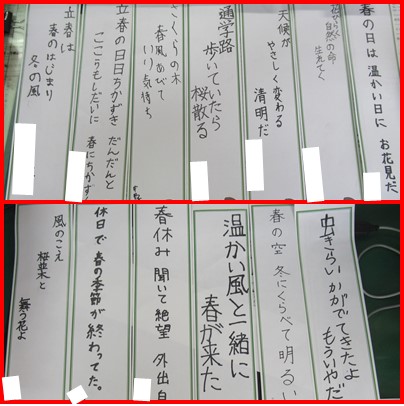 春の日は 温かい日に お花見だ
自然の命
生れてく
天候が
やさしく変わる
清明だ
通学路
歩いていたら
桜散る
さくらの木
春風あびて
いい気持ち
立春の日日ちかずき だんだんと
ここうもしだいに 春にちかず
立春は
春のはじまり
冬の風
虫きらい かがでてきたよ
もういやだ
春の空 冬にくらべて 明るい
温かい風と一緒に
春が来た
春休み 聞いて絶望 外出自
休日で 春の季節が 終わってた。
風のこえ
桜並木と
舞う花よ